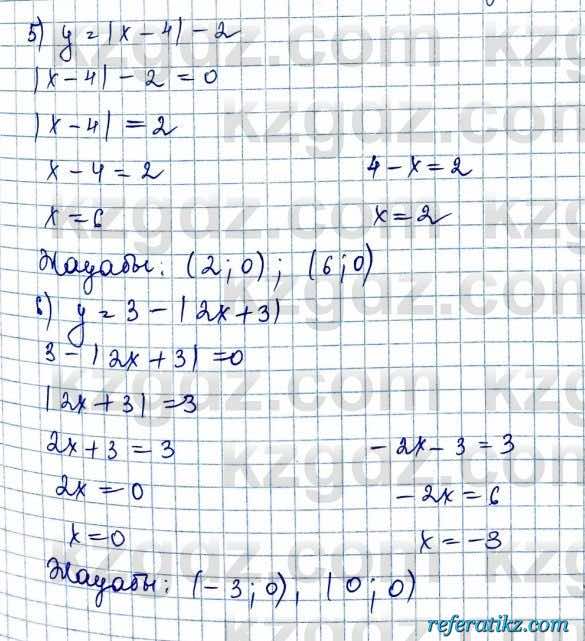 5) y = |x − 4| − 2
|x − 4| − 2 = 0
|x − 4| = 2
x − 4 = 2    4 − x = 2
x = 6    x = 2
Жауабы: (2; 0); (6; 0)
6) y = 3 − |2x + 3|
3 − |2x + 3| = 0
|2x + 3| = 3
2x + 3 = 3    −2x − 3 = 3
2x = 0    −2x = 6
x = 0    x = −3
Жауабы: (−3; 0), (0; 0)
referatikz.com